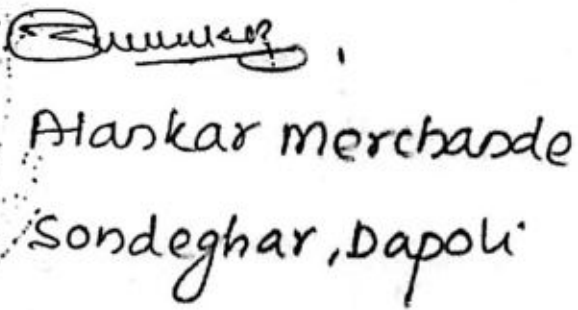 Alankar merchande
Sondeghar, Dapoli